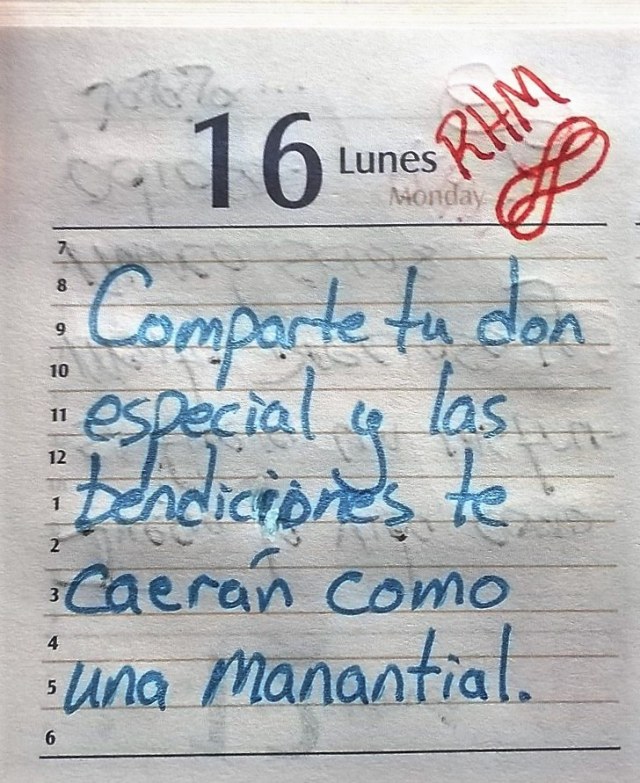 16 Lunes RHM
Monday
7
8
Comparte tu don
9
10
especial y las
11
12
bendiciones te
1
2
caerán como
3
4
una manantial.
5
6